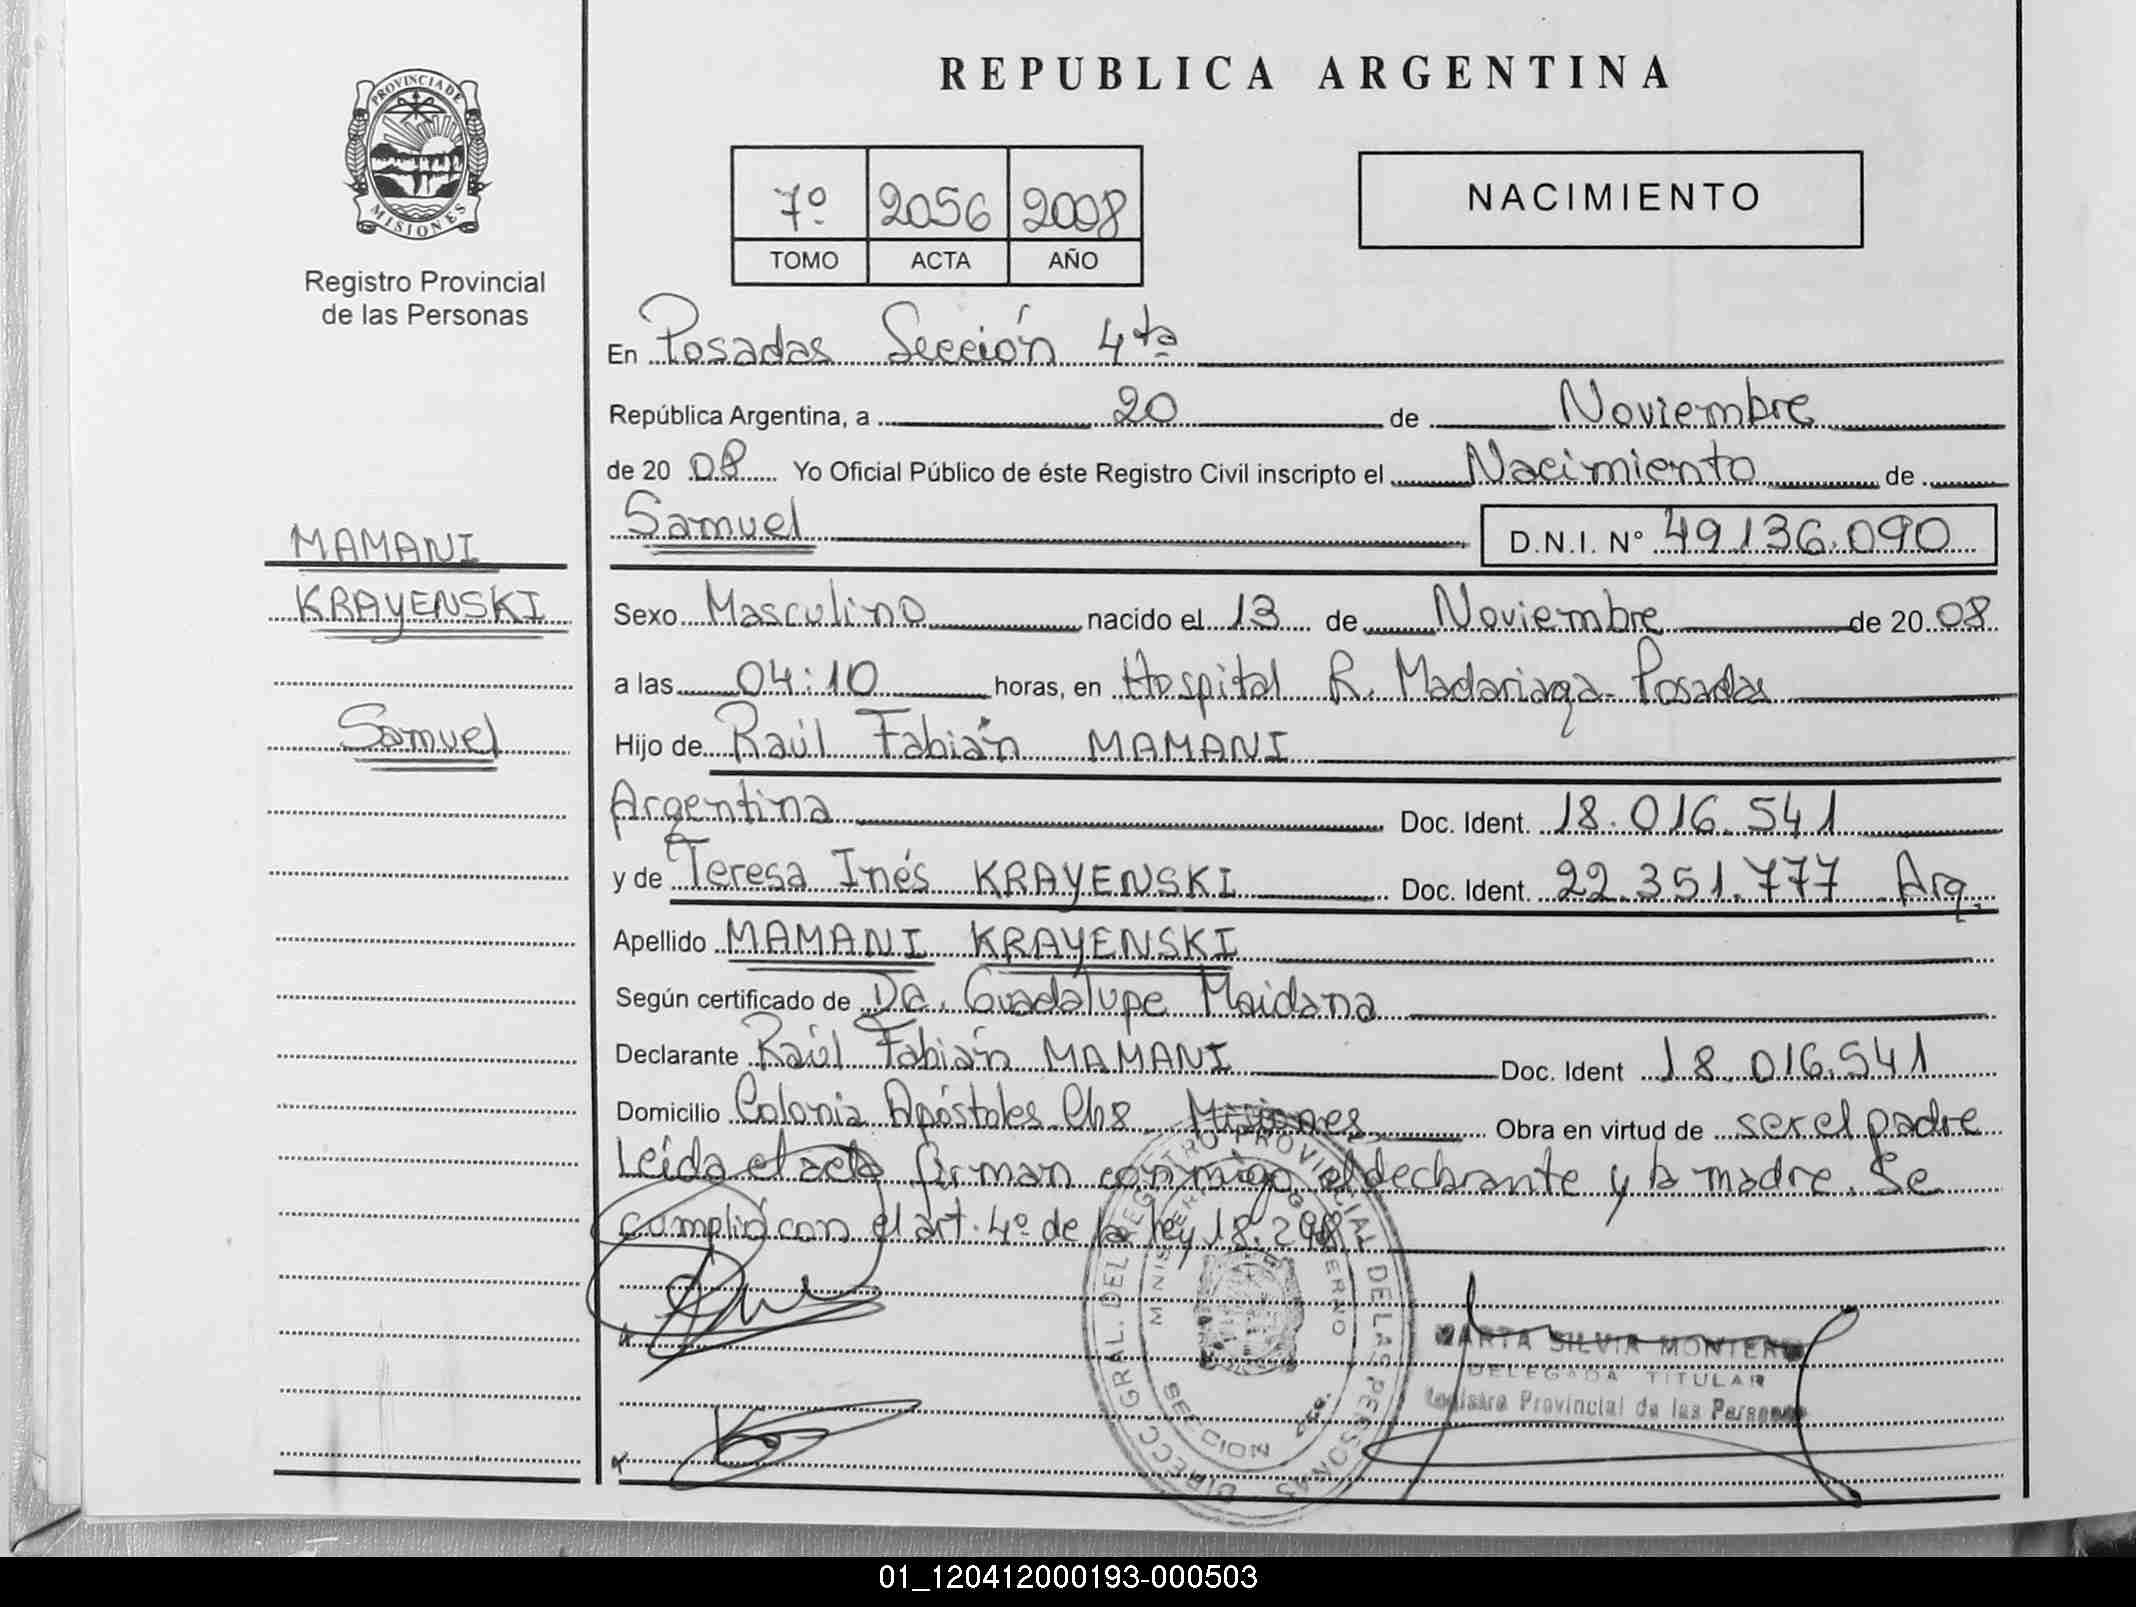 PROVINCIA DE
MISIONES
Registro Provincial
de las Personas
MAMANI
KRAYENSKI
Samuel
REPUBLICA ARGENTINA
7º 2056 2008
TOMO ACTA AÑO
NACIMIENTO
En Posadas Sección 4ta
República Argentina, a 20 de Noviembre
de 20 08 Yo Oficial Público de éste Registro Civil inscripto el Nacimiento de
Samuel D.N.I. Nº 49.136.090
Sexo Masculino nacido el 13 de Noviembre de 20 08
a las 04:10 horas, en Hospital R. Madariaga - Posadas
Hijo de Raúl Fabián MAMANI
Argentina Doc. Ident. 18.016.541
y de Teresa Inés KRAYENSKI Doc. Ident. 22.351.777 Arg.
Apellido MAMANI KRAYENSKI
Según certificado de Dra. Guadalupe Maidana
Declarante Raúl Fabián MAMANI Doc. Ident 18.016.541
Domicilio Colonia Apóstoles Ch8 Misiones Obra en virtud de ser el padre
Leída el acta firman conmigo el declarante y la madre. Se
cumplió con el art. 4º de la ley 18.248
DIRECC GRAL. DEL REGISTRO PROVINCIAL DE LAS PERSONAS
SECCION
MARTA SILVIA MONTIERO
DELEGADA TITULAR
Registro Provincial de las Personas
01_120412000193-000503